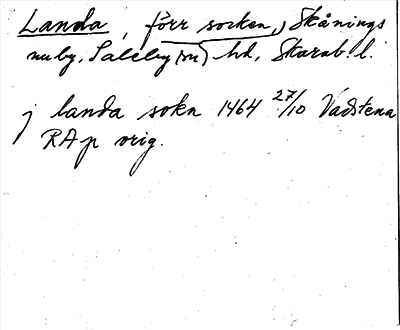 Landa, förr socken, Skånings
nuby, Saleby sn, hd, Skarab. l.
j landa sokn 1464 27/10 Vadstena
RAp orig.